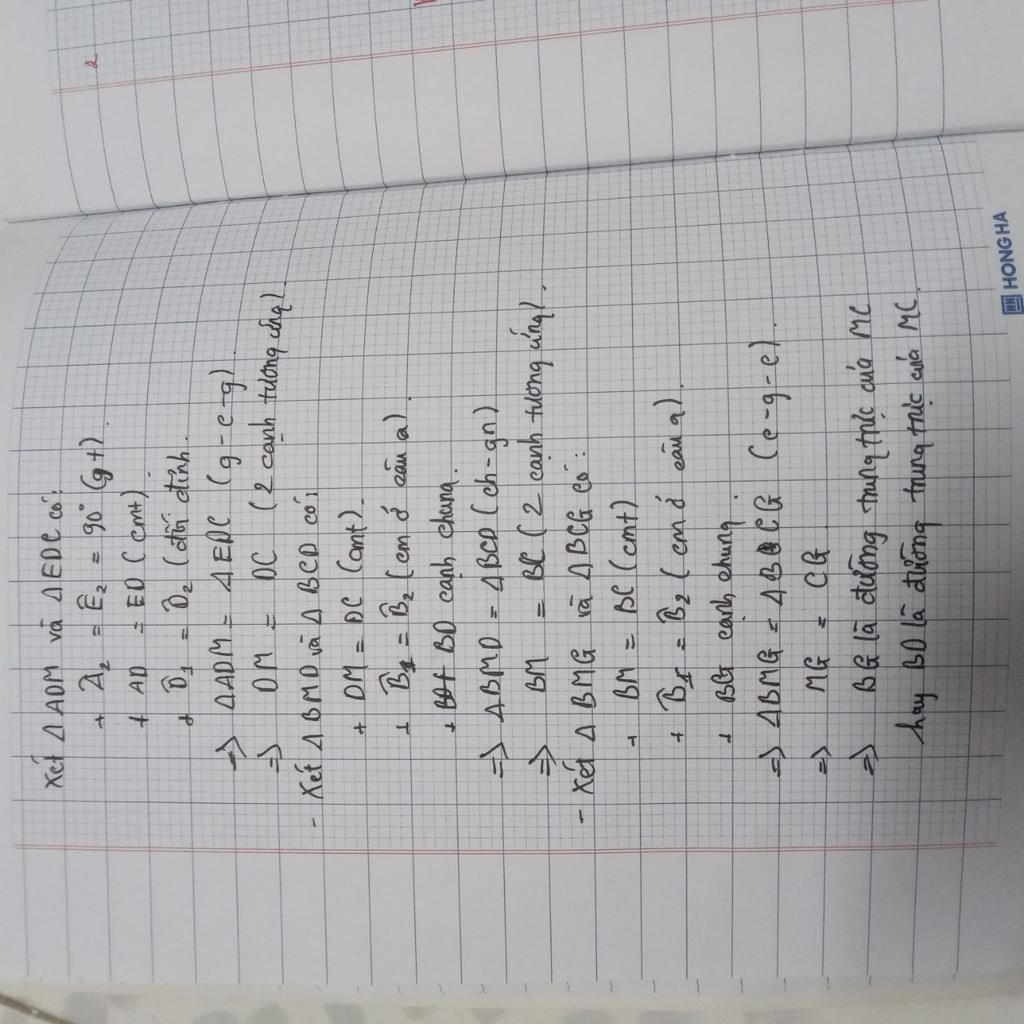 Xét ΔADM và ΔEDC có:
+ Â₂ = Ê₂ = 90° (gt).
+ AD = ED (cmt)
+ D̂₁ = D̂₂ (đối đỉnh.
=> ΔADM = ΔEDC (g-c-g).
=> DM = DC (2 cạnh tương ứng).
- Xét ΔBMD và ΔBCD có:
+ DM = DC (cmt).
+ B̂₁ = B̂₂ (cm ở câu a).
+ BD cạnh chung.
=> ΔBMD = ΔBCD (ch-gn)
=> BM = BC (2 cạnh tương ứng).
- Xét ΔBMG và ΔBCG có:
+ BM = BC (cmt)
+ B̂₁ = B̂₂ (cm ở câu a).
+ BG cạnh chung.
=> ΔBMG = ΔBCG (c-g-c).
=> MG = CG
=> BG là đường trung trực của MC
hay BD là đường trung trực của MC.
HH HONG HA
2